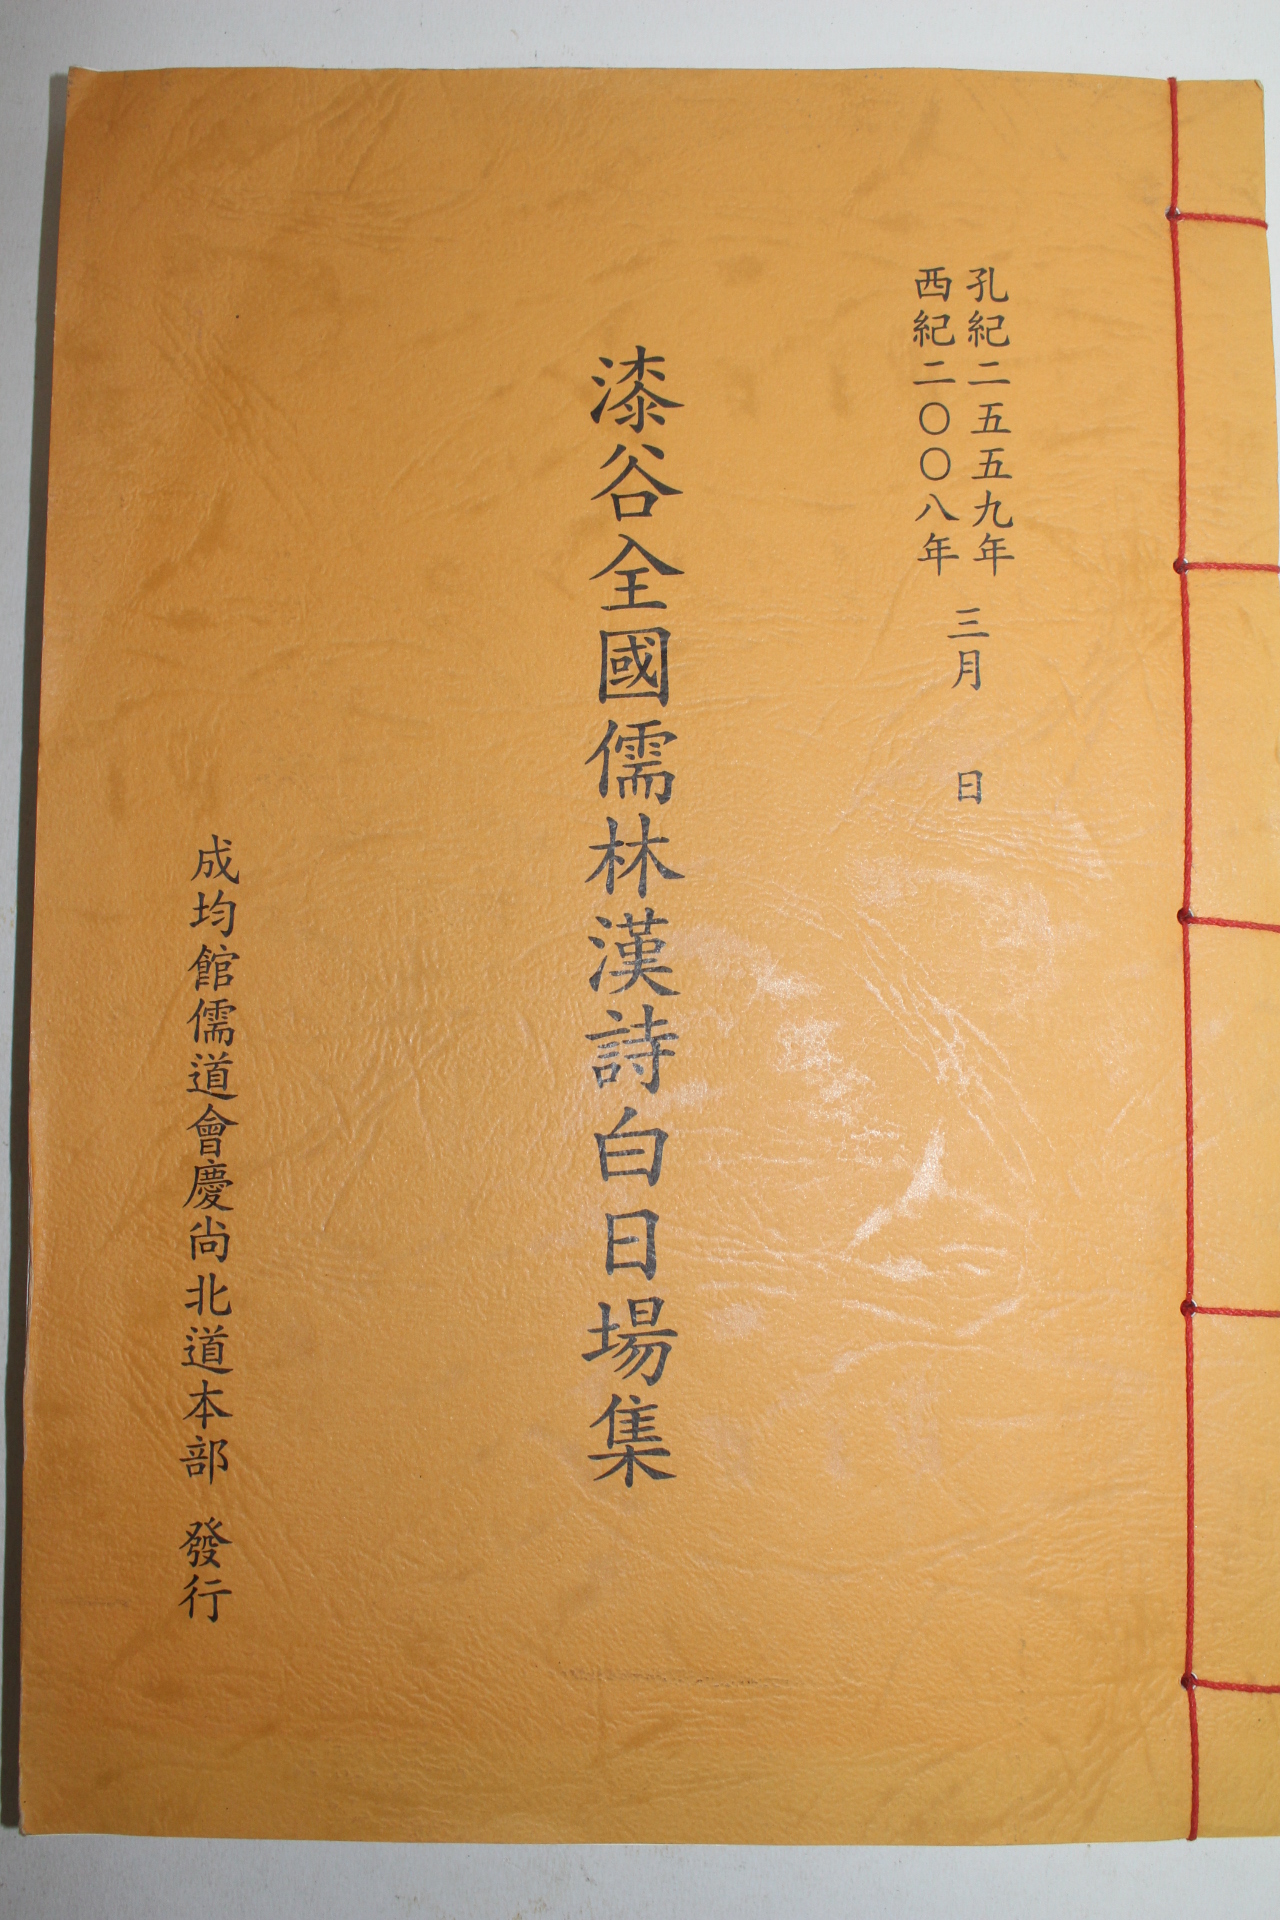 孔紀二五五九年
西紀二〇〇八年
三月 日
漆谷全國儒林漢詩白日場集
成均館儒道會慶尚北道本部 發行